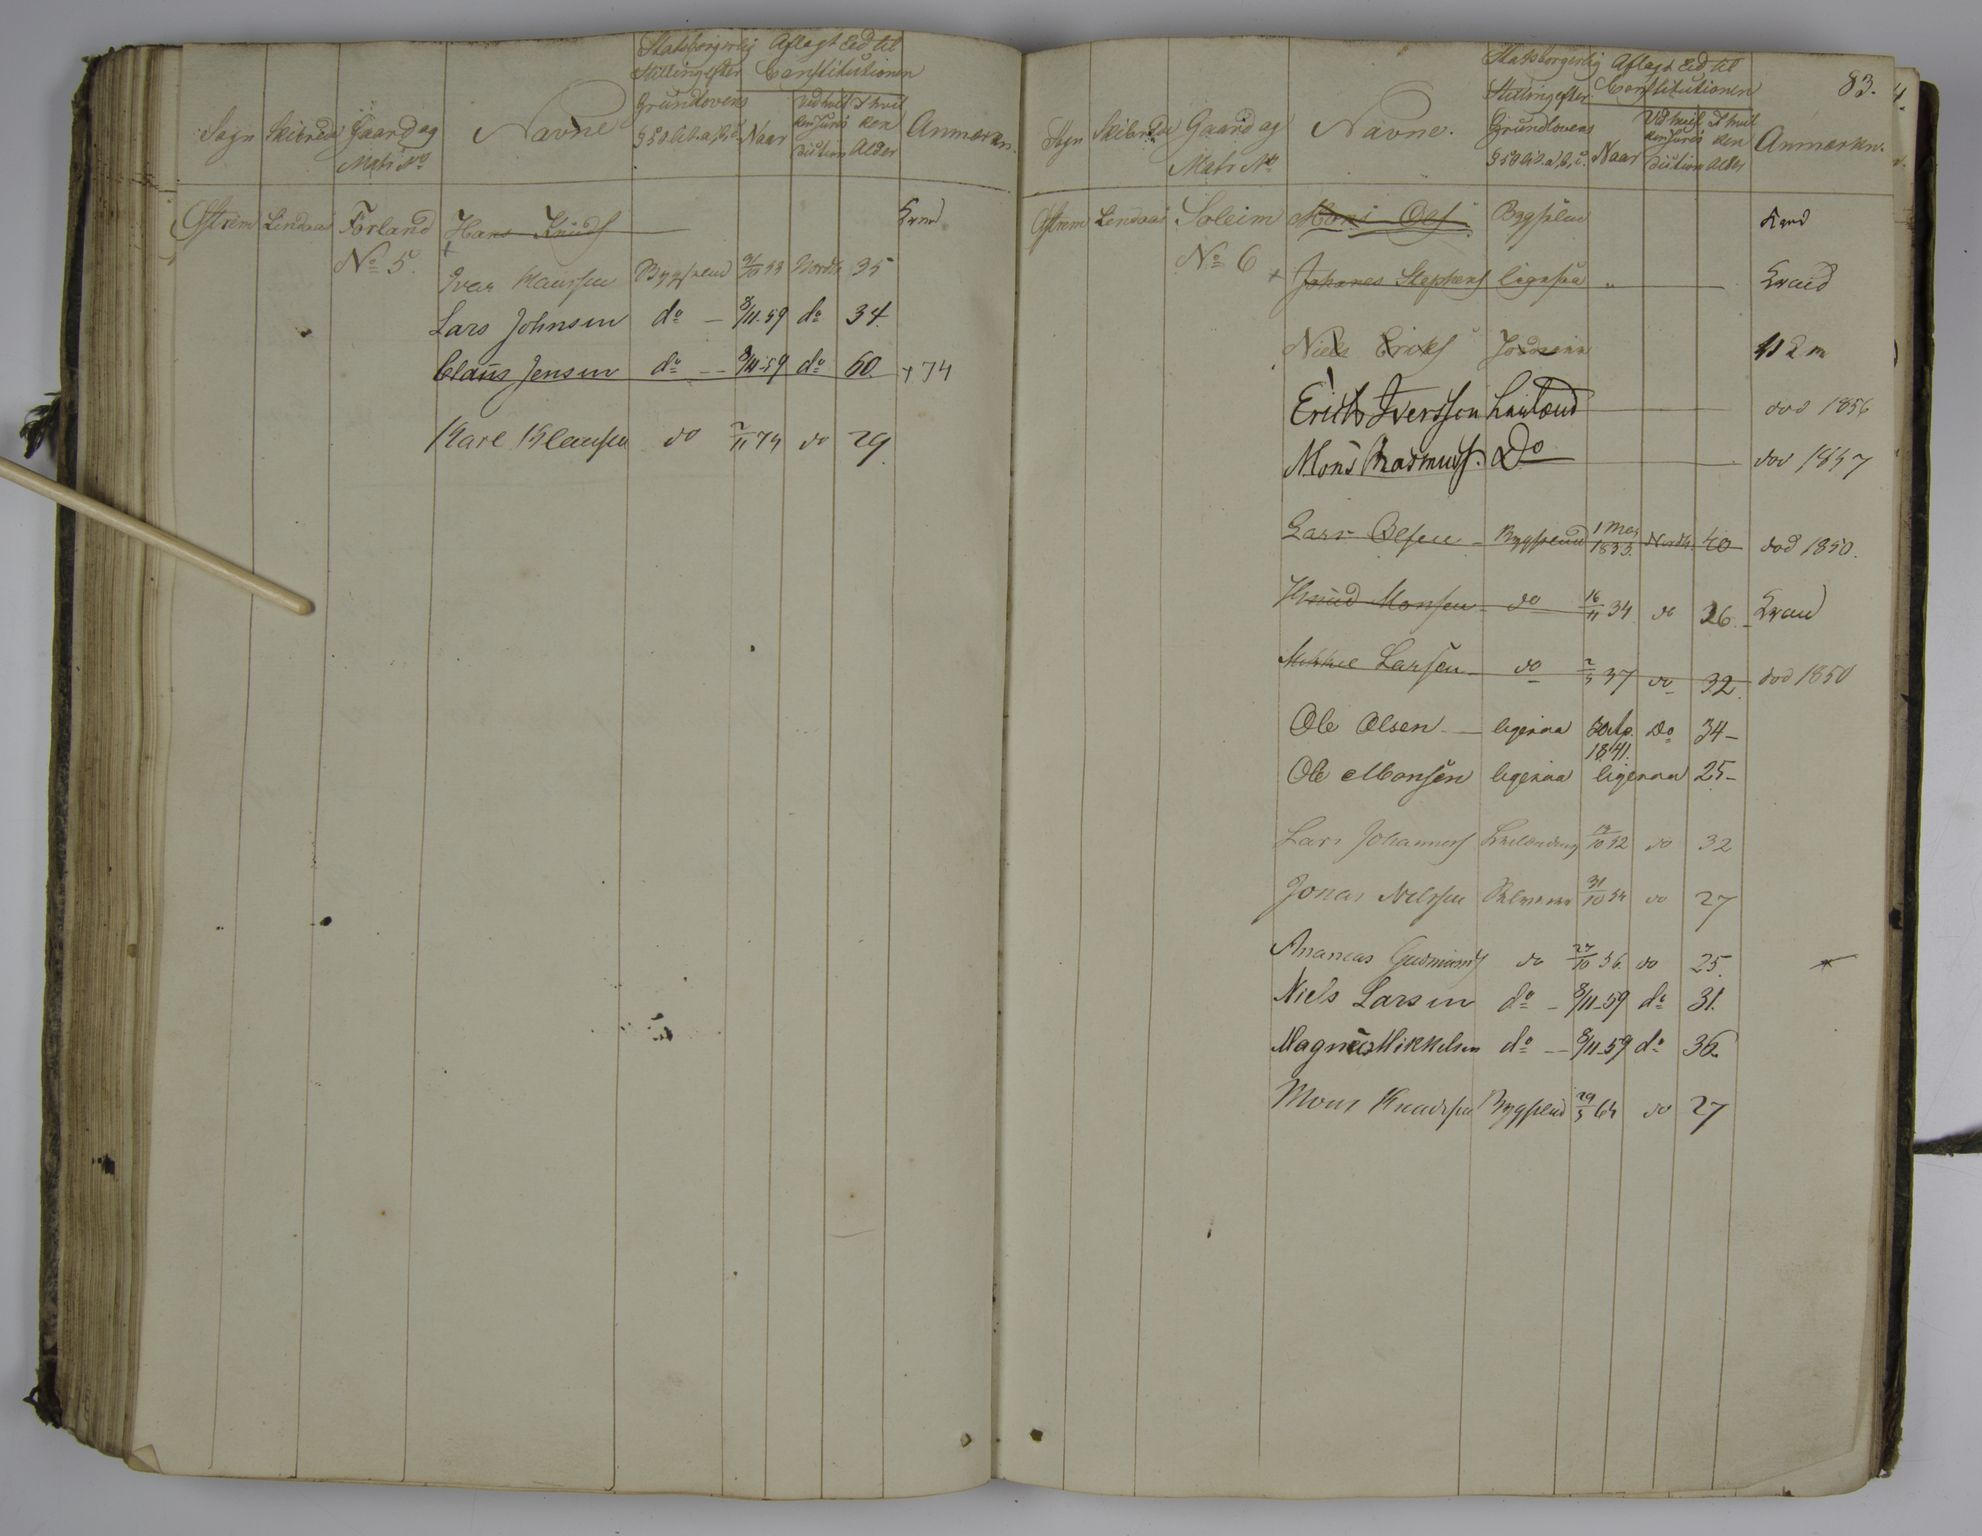 Sogn Skibrede Gaard og Matr No Navne Statsborgerlig Stilling efter Grundlovens § 50 Lit. a, b, c. Aflagt Eed til Constitutionen Naar Ved hvilken Jurisdiction I hvilken Alder Anmærkn.
Ostrem Lindaas Forland Hans Knuds
No 5.
Ivar Hanssen Bygselmd 53 Nordh 35
Lars Johnsen do - 8/11-59 do 34.
Claus Jensen do - 8/11-59 do 60. + 74
Karl Klausen do 2/11 74 do 29.
83.
Sogn Skibrede Gaard og Matr No Navne. Statsborgerlig Stilling efter Grundlovens § 50 Lit. a, b, c. Aflagt Eed til Constitutionen Naar Ved hvilken Jurisdiction I hvilken Alder Anmærkn.
Ostrem Lindaas Soleim Mons Ols Bygselmd
No 6
Johanes Stephens ligesaa "
Niels Eriks
Erich Iversson død 1856
Mons Rasmus. Do død 1857
Lars Olsen - Bygselmd 1 Mai 1833. Nordh. 40 død 1850.
Knud Monsen - do 16/11 34 do 26.
Mikkel Larsen - do 2/5 37 do 32. død 1850
Ole Olsen - ligesaa 30 Ap. 1841. Do 34 -
Ole Monsen ligesaa ligesaa 25 -
Lars Johannes 52 do 32
Jonas Nilssen 31/10 54 do 27
Ananias Gudmunds do 27/10 56. do 25.
Niels Larsen do - 8/11-59 do 31.
Magnus Mikkelsen do - 8/11-59 do 36.
Mons Knudsen Bygselmd 29/5 64 do 27